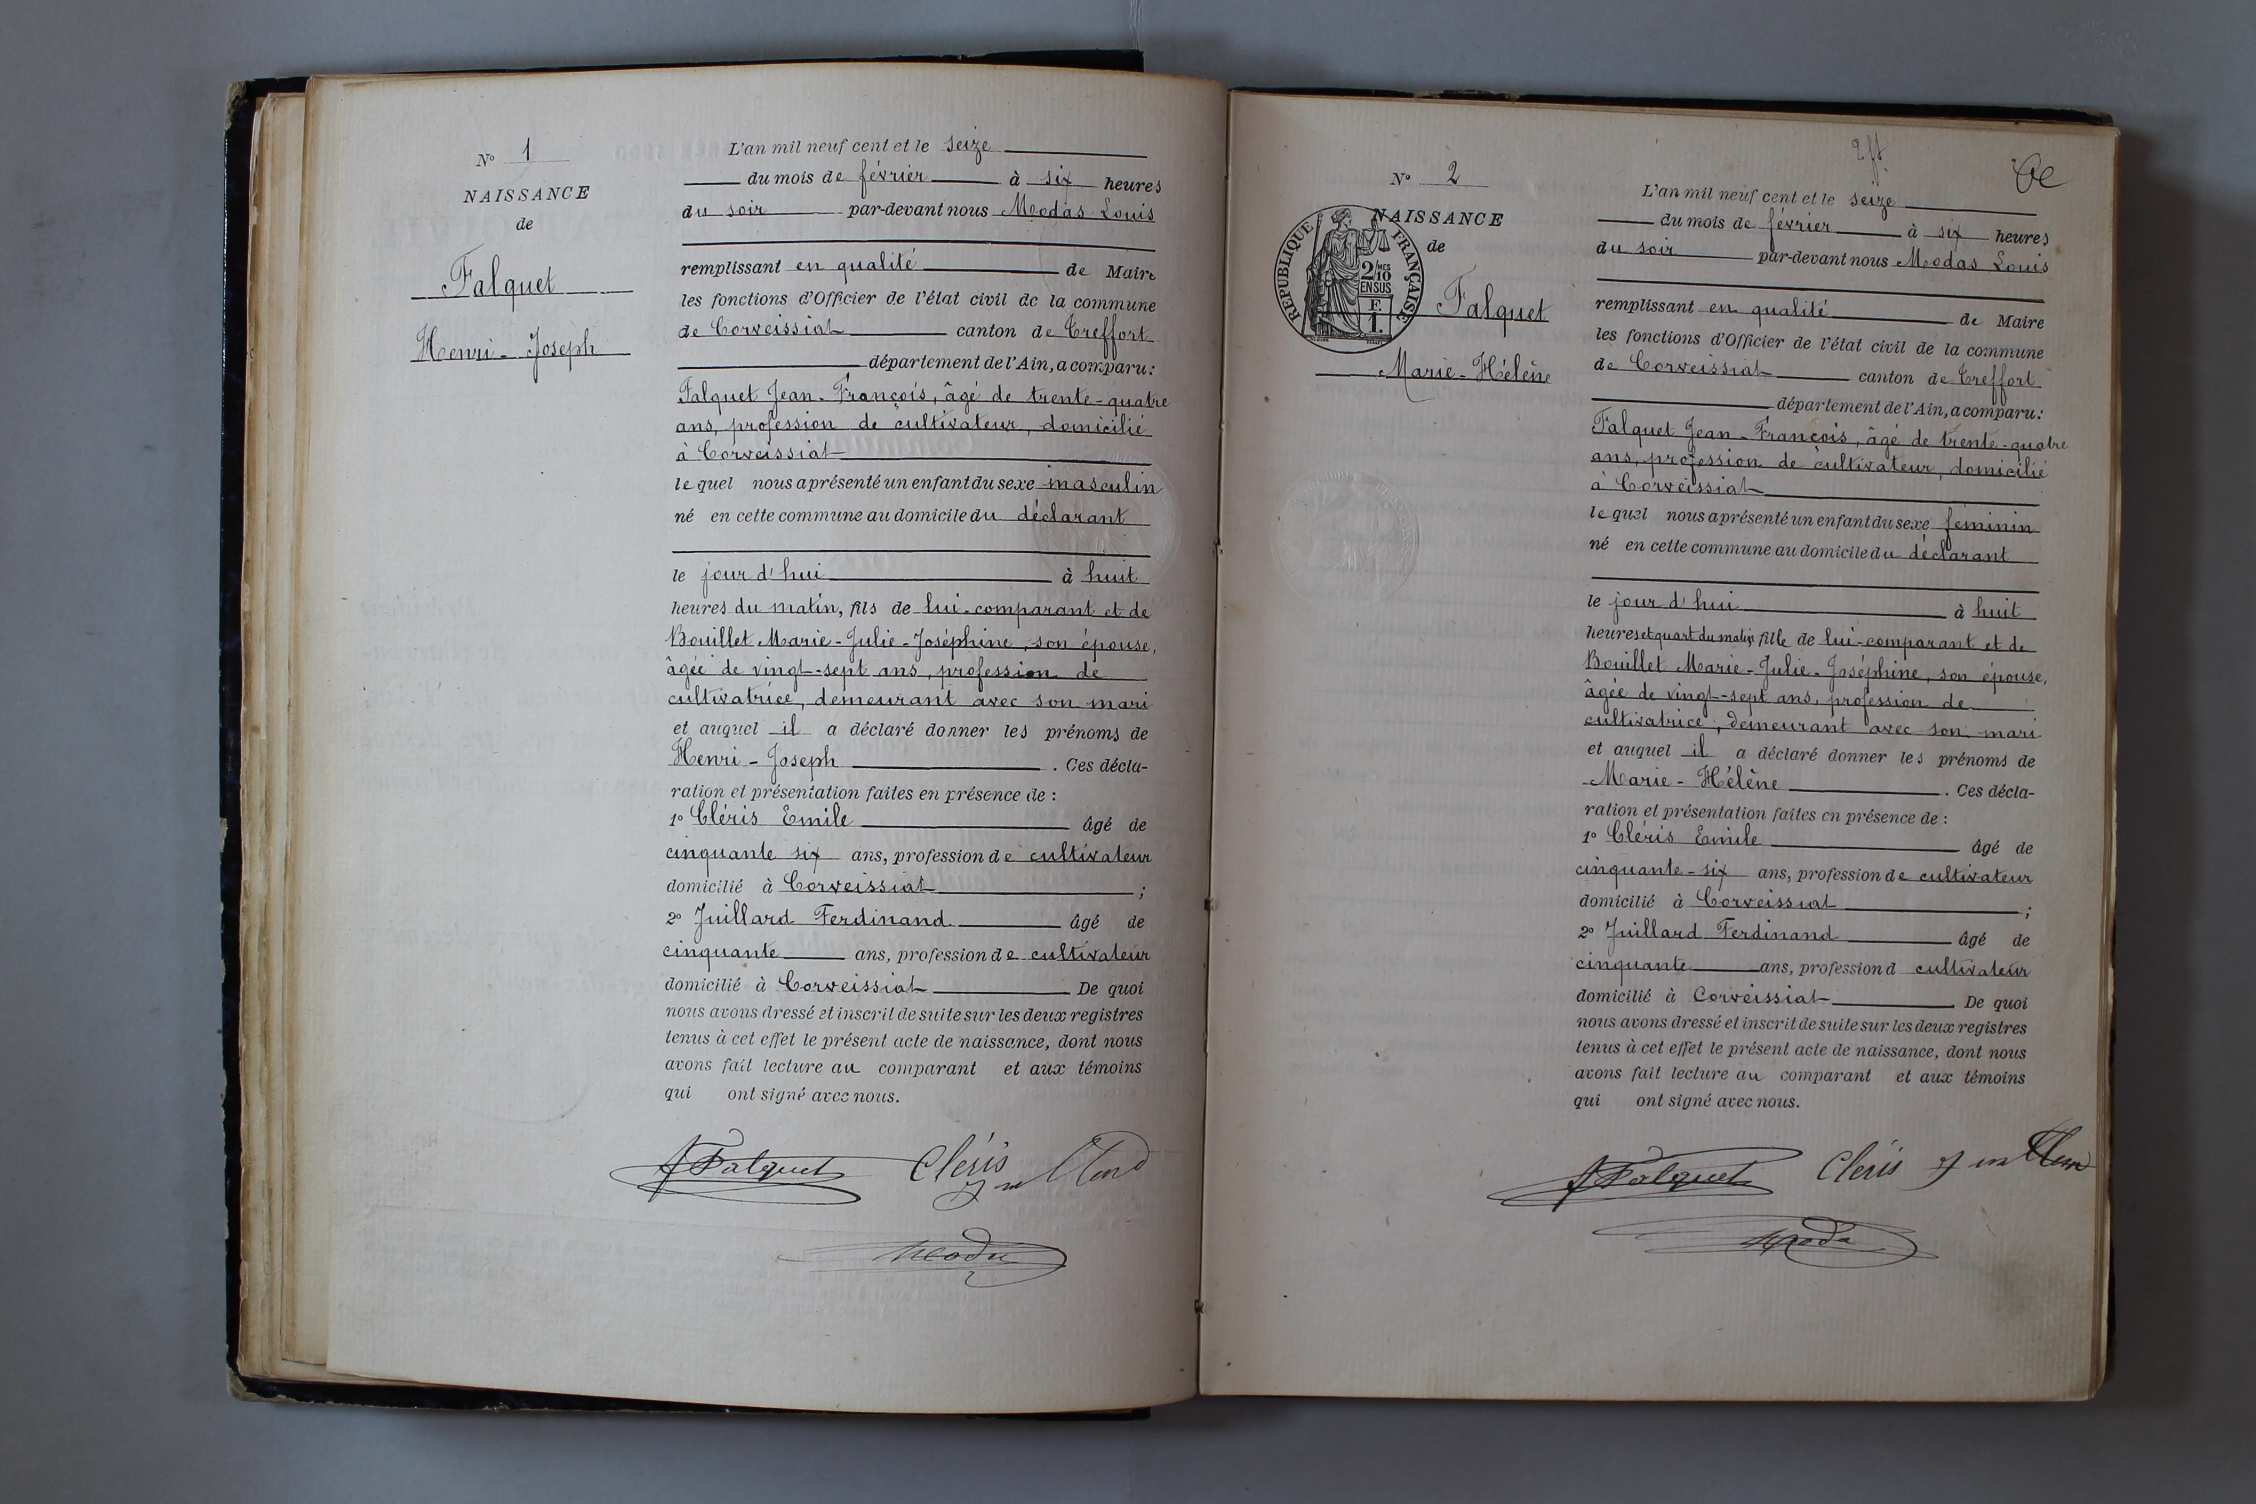 N° 1
NAISSANCE
de
Falquet
Henri-Joseph
L'an mil neuf cent et le seize
du mois de février à six heures
du soir par-devant nous Modas Louis
remplissant en qualité de Maire
les fonctions d'Officier de l'état civil de la commune
de Corveissiat canton de Treffort
département de l'Ain, a comparu:
Falquet Jean-François, âgé de trente-quatre
ans, profession de cultivateur, domicilié
à Corveissiat
lequel nous a présenté un enfant du sexe masculin
né en cette commune au domicile du déclarant
le jour d'hui à huit
heures du matin, fils de lui-comparant et de
Bouillet Marie-Julie-Joséphine, son épouse,
âgée de vingt-sept ans, profession de
cultivatrice, demeurant avec son mari
et auquel il a déclaré donner les prénoms de
Henri-Joseph. Ces décla-
ration et présentation faites en présence de :
1° Cléris Emile âgé de
cinquante six ans, profession de cultivateur
domicilié à Corveissiat ;
2° Juillard Ferdinand âgé de
cinquante ans, profession de cultivateur
domicilié à Corveissiat De quoi
nous avons dressé et inscrit de suite sur les deux registres
tenus à cet effet le présent acte de naissance, dont nous
avons fait lecture au comparant et aux témoins
qui ont signé avec nous.
Falquet Cléris Juillard
Modas
2
N° 2
NAISSANCE
de
RÉPUBLIQUE FRANÇAISE
2/10 MES
EN SUS
F.
1.
Falquet
Marie-Hélène
L'an mil neuf cent et le seize
du mois de février à six heures
du soir par-devant nous Modas Louis
remplissant en qualité de Maire
les fonctions d'Officier de l'état civil de la commune
de Corveissiat canton de Treffort
département de l'Ain, a comparu:
Falquet Jean-François, âgé de trente-quatre
ans, profession de cultivateur, domicilié
à Corveissiat
lequel nous a présenté un enfant du sexe féminin
né en cette commune au domicile du déclarant
le jour d'hui à huit
heures et quart du matin, fille de lui-comparant et de
Bouillet Marie-Julie-Joséphine, son épouse,
âgée de vingt-sept ans, profession de
cultivatrice, demeurant avec son mari
et auquel il a déclaré donner les prénoms de
Marie-Hélène. Ces décla-
ration et présentation faites en présence de :
1° Cléris Emile âgé de
cinquante-six ans, profession de cultivateur
domicilié à Corveissiat ;
2° Juillard Ferdinand âgé de
cinquante ans, profession d cultivateur
domicilié à Corveissiat De quoi
nous avons dressé et inscrit de suite sur les deux registres
tenus à cet effet le présent acte de naissance, dont nous
avons fait lecture au comparant et aux témoins
qui ont signé avec nous.
Falquet Cléris
Modas